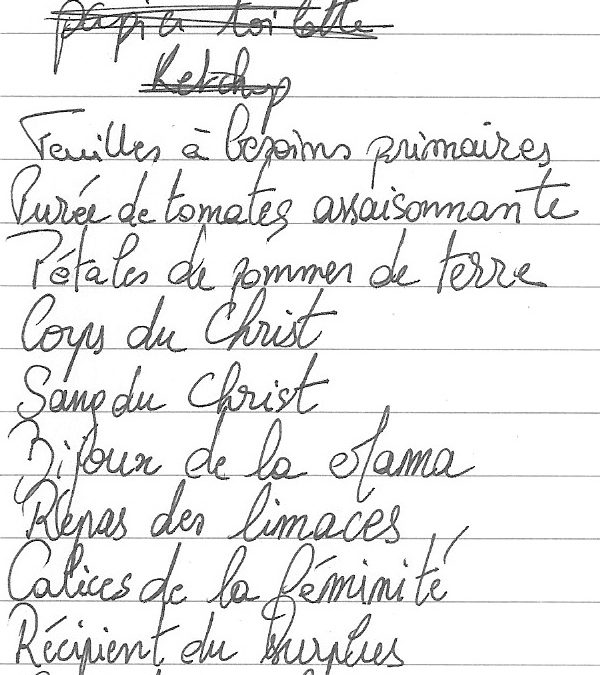 papier toilette
Ketchup
Feuilles à besoins primaires
Purée de tomates assaisonnante
Pétales de pommes de terre
Corps du Christ
Sang du Christ
Bijoux de la Mama
Repas des limaces
Calices de la féminité
Récipient du surplus